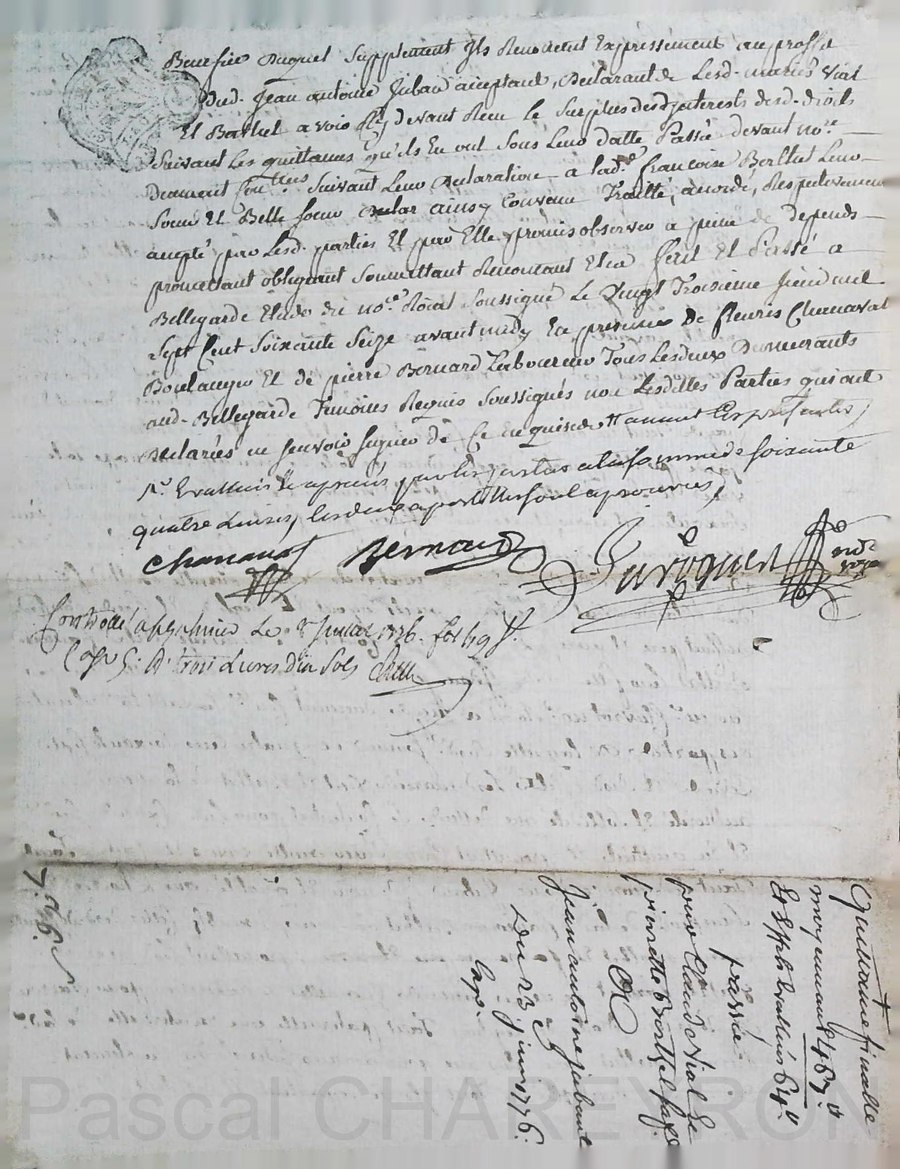 Benefice duquel Supplement Ils Renoncent Expressement au proffit
Dud. Jean antoine Juban acceptant, declarant Lesd. mariés Vial
Et Berthet avoir devant Reçu Le Surplus desd. interests desd. droits
Suivant Les quittances qu'ils En ont Sous Leur datte Passée devant no.re
Suivant Leur declaration a lad. francoise Berthet Leur
Soeur Et Belle Soeur ainsy Convenu Traitté, accordé, Respectivement
accepté par Lesd. parties Et par Elle promis observer a peine de depends
promettant obligeant Soumettant Renoncant Etca fait Et Passé a
Bellegarde Etude du no.re Roial Soussigné Le Vingt Troisieme Juin mil
Sept Cent Soixante Seize avant midy En presence de fleuris Chanavat
Boulanger Et de pierre Bernard Laboureur Tous Lesdeux Demeurants
aud. Bellegarde Temoins Requis Soussignés non Lesdittes Parties qui ont
declarés ne Scavoir signer de Ce enquises
a la somme de soixante
quatre Livres, les deux apostilles sont aprouvées,
Chanavat Bernard
no.re royal
Le 3 Juillet 1776. fol
trois Livres dix Sols
7. 96.
Quittance finalle
moyennant 467 ll
Et Effets Evalués 64 ll
passée
par Claude Vial Et
pierrette Berthet sa fe
A
Jean antoine juban
Du 23 juin 1776.
Exp.
Pascal CHAREYRON